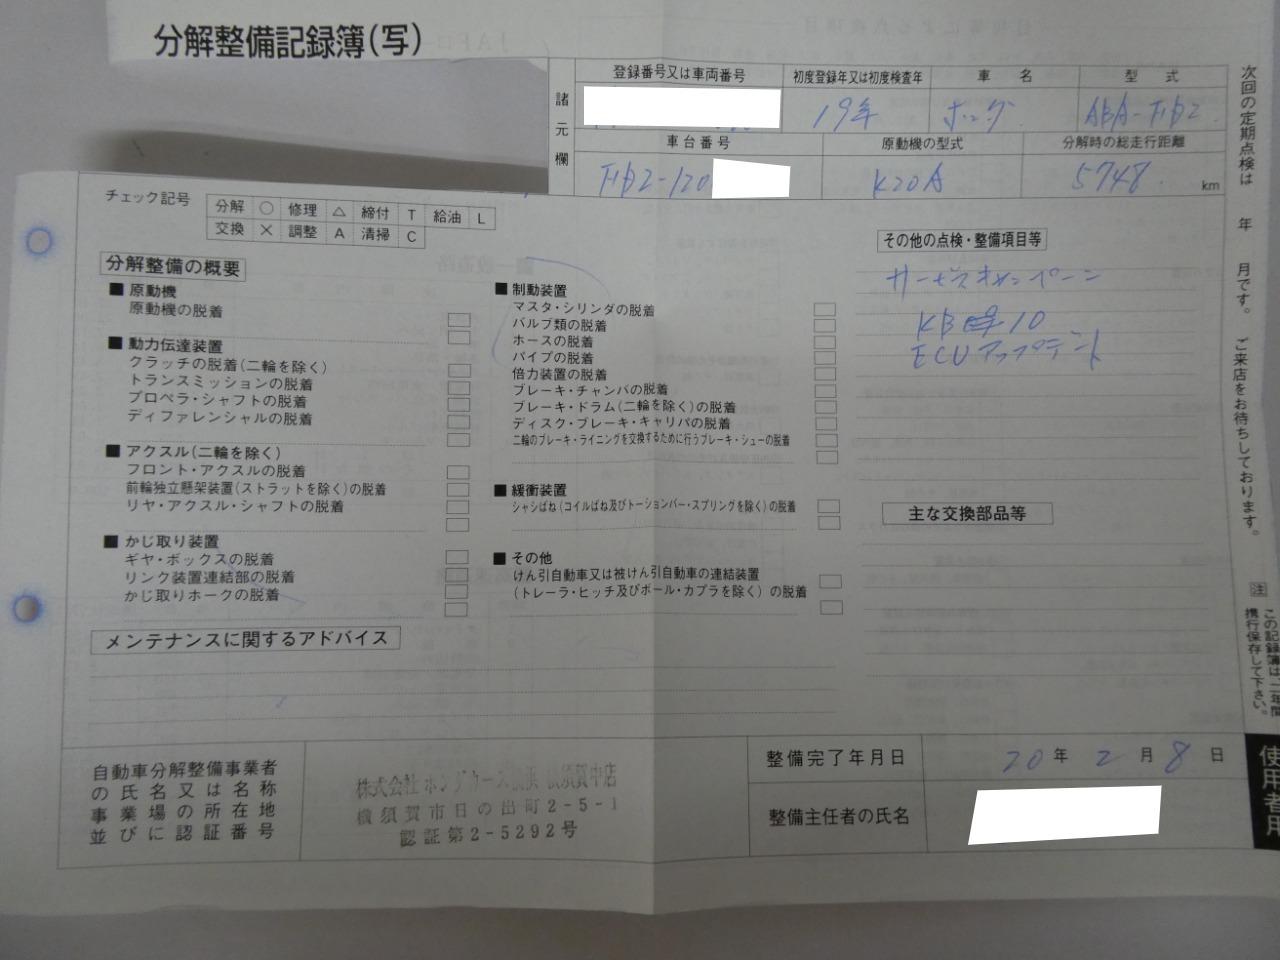 分解整備記録簿(写)
諸元欄
登録番号又は車両番号
初度登録年又は初度検査年
車名
型式
19年
ホンダ
ABA-FD2
車台番号
原動機の型式
分解時の総走行距離
FD2-120
K20A
5748 km
次回の定期点検は 年 月です。ご来店をお待ちしております。
チェック記号
分解 ○ 修理 △ 締付 T 給油 L
交換 × 調整 A 清掃 C
分解整備の概要
■ 原動機
原動機の脱着
■ 動力伝達装置
クラッチの脱着(二輪を除く)
トランスミッションの脱着
プロペラ・シャフトの脱着
ディファレンシャルの脱着
■ アクスル(二輪を除く)
フロント・アクスルの脱着
前輪独立懸架装置(ストラットを除く)の脱着
リヤ・アクスル・シャフトの脱着
■ かじ取り装置
ギヤ・ボックスの脱着
リンク装置連結部の脱着
かじ取りホークの脱着
■ 制動装置
マスタ・シリンダの脱着
バルブ類の脱着
ホースの脱着
パイプの脱着
倍力装置の脱着
ブレーキ・チャンバの脱着
ブレーキ・ドラム(二輪を除く)の脱着
ディスク・ブレーキ・キャリパの脱着
二輪のブレーキ・ライニングを交換するために行うブレーキ・シューの脱着
■ 緩衝装置
シャシばね(コイルばね及びトーションバー・スプリングを除く)の脱着
■ その他
けん引自動車又は被けん引自動車の連結装置
(トレーラ・ヒッチ及びボール・カプラを除く)の脱着
その他の点検・整備項目等
サービスキャンペーン
10
ECUアップデート
主な交換部品等
注 この記録簿は、二年間
携行保存して下さい。
メンテナンスに関するアドバイス
自動車分解整備事業者
の氏名又は名称
事業場の所在地
並びに認証番号
株式会社ホンダカーズ横浜 横須賀中店
横須賀市日の出町2-5-1
認証第2-5292号
整備完了年月日
20年 2月 8日
整備主任者の氏名
使用者用